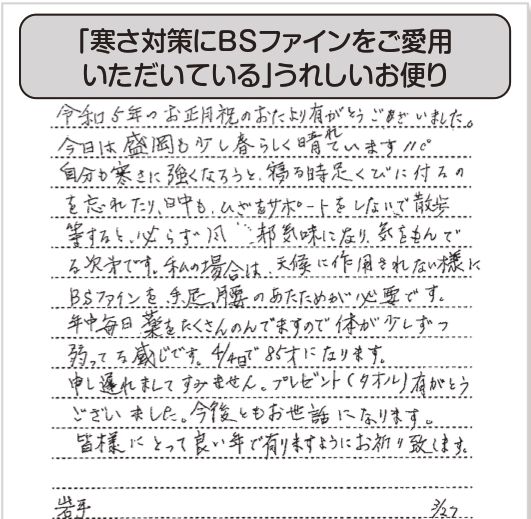 「寒さ対策にBSファインをご愛用
いただいている」うれしいお便り
令和5年のお正月祝のおたより有がとうございました。
今日は盛岡も少し春らしく晴れています〃。
自分も寒さに強くなろうと、寝る時足くびに付るの
を忘れたり、日中も、ひざをサポートをしないで散歩
等すると、必らず風邪気味になり、気をもんで
る次才です。私の場合は、天候に作用されない様に
BSファインを手足、腰のあたためが必要です。
年中毎日薬をたくさんのんでますので体が少しずつ
弱ってる感じです。4/4日で85才になります。
申し遅れましてすみません。プレゼント(タオル)有がとう
ございました。今後ともお世話になります。
皆様にとって良い年で有りますようにお祈り致します。
岩手 3/27